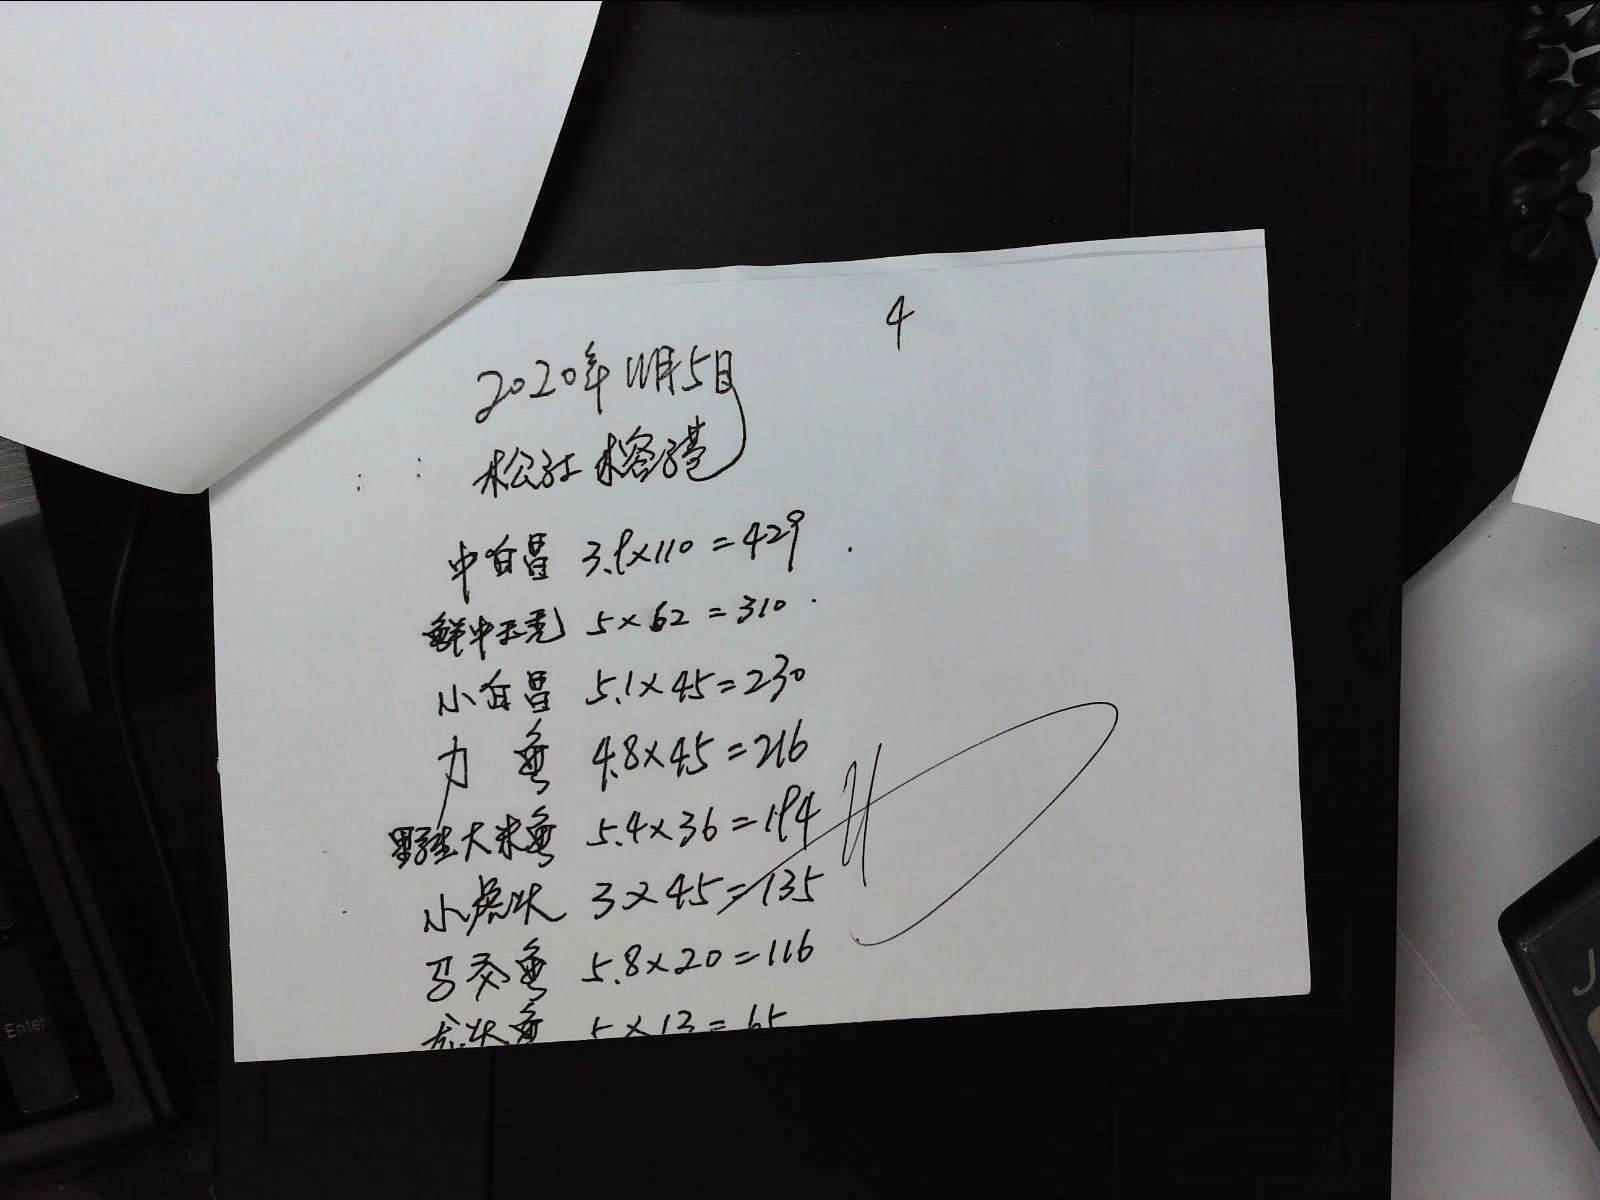 4
2020年11月5日
松江榕港
中白昌 3.9×110=429
鲜中王売 5×62=310
小白昌 5.1×45=230
力鱼 4.8×45=216
野生大米鱼 5.4×36=194
小虎头 3×45=135
马交鱼 5.8×20=116
龙头鱼 5×13=65
Enter
J